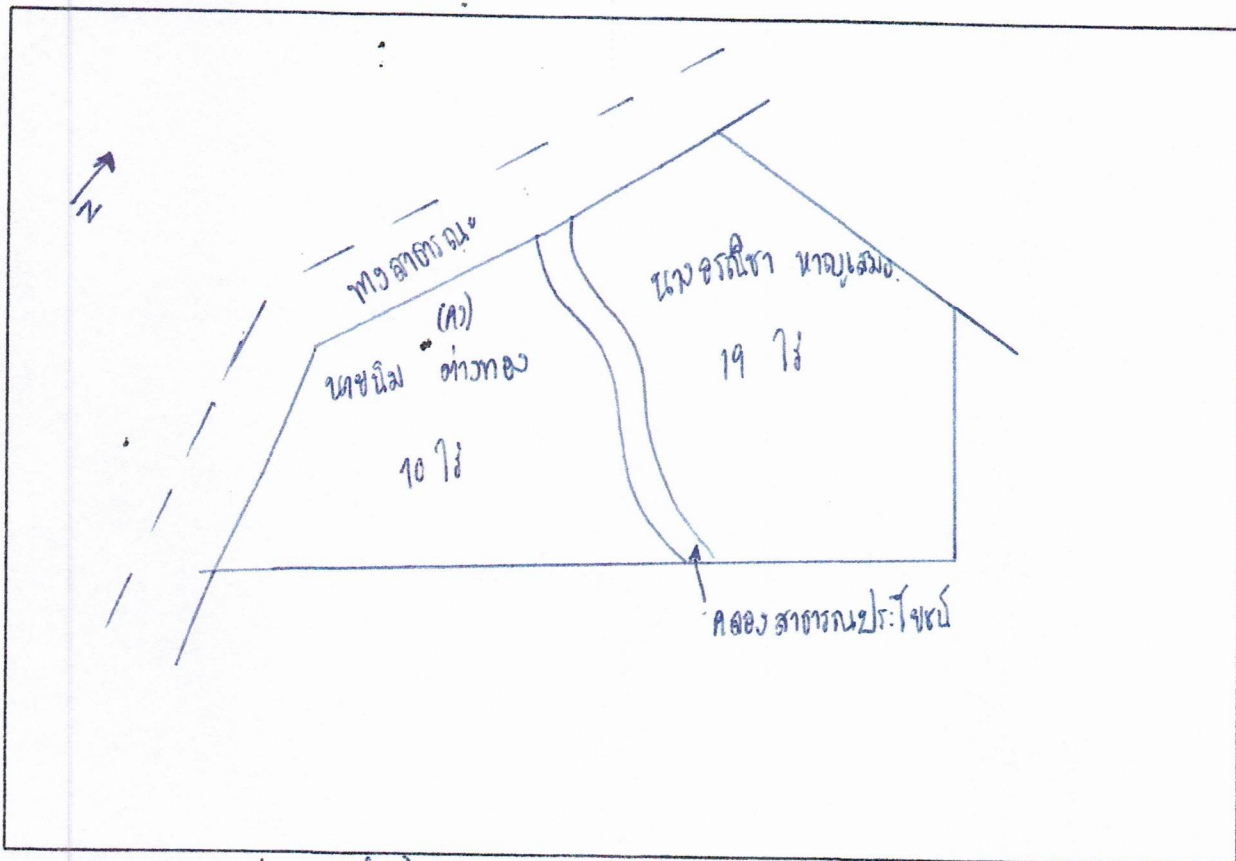 N
ทางสาธารณะ
(คง)
นายนิม ต่างทอง
10 ไร่
นางอรณิชา หาญเสมอ
19 ไร่
คลองสาธารณประโยชน์